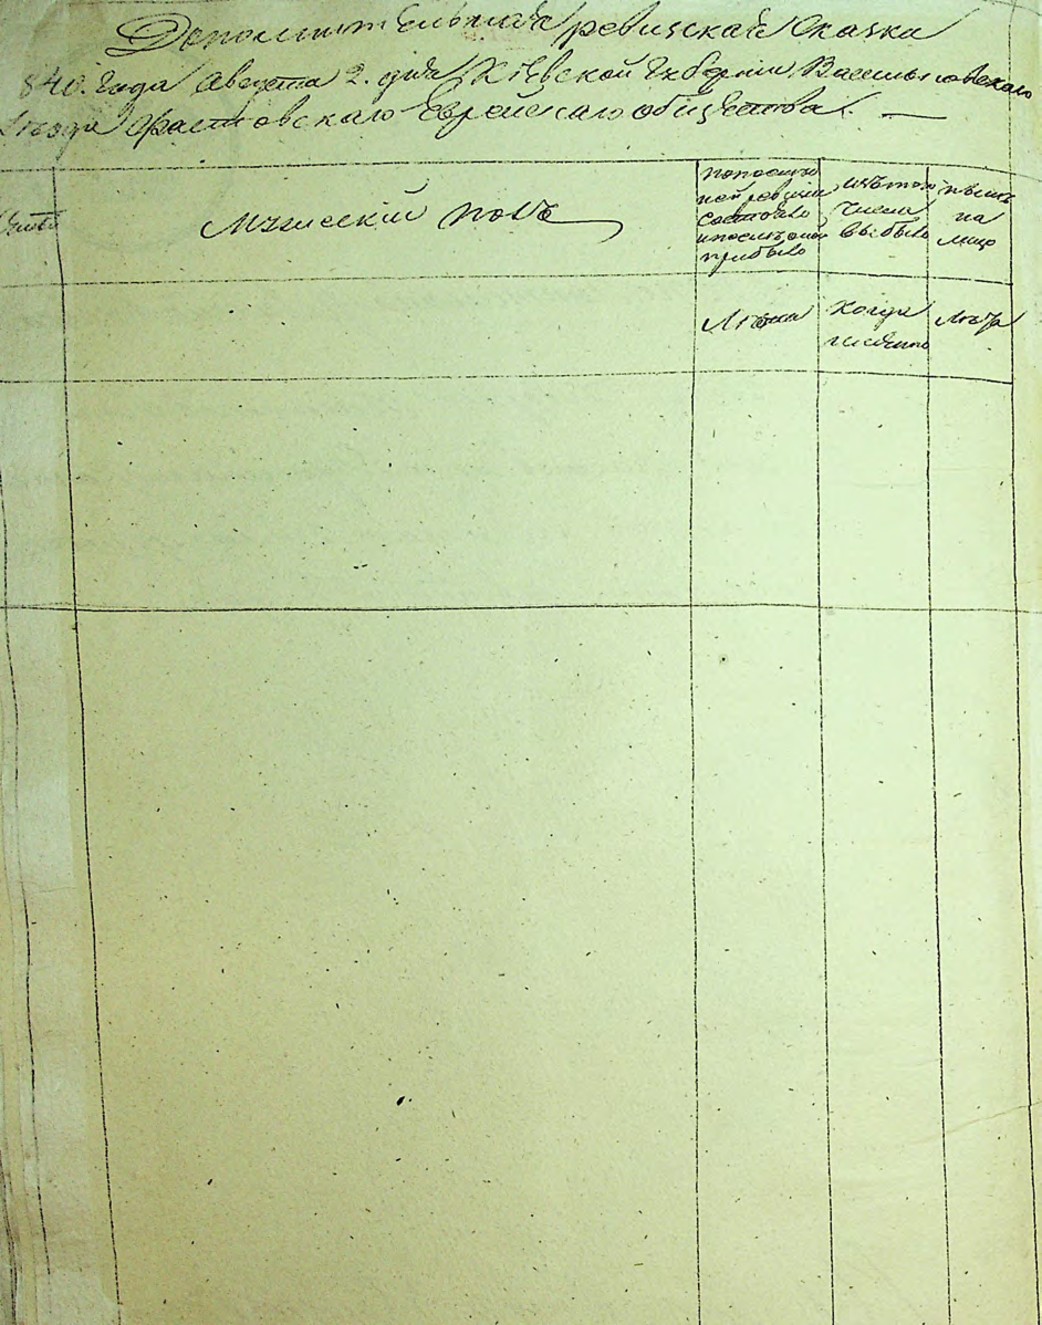 Дополнительная ревизская Сказка
840. Года Августа 2. дня Кіевской Губерніи Васильковскаго
Уезда Фастовскаго Еврейскаго общества.
Мужескій полъ
попослед
ней ревизіи
состояло
ипослетого
прибыло
изътого
числа
выбыло
нынѣ
на
лицо
Лѣта
Когда
имянно
Лѣта